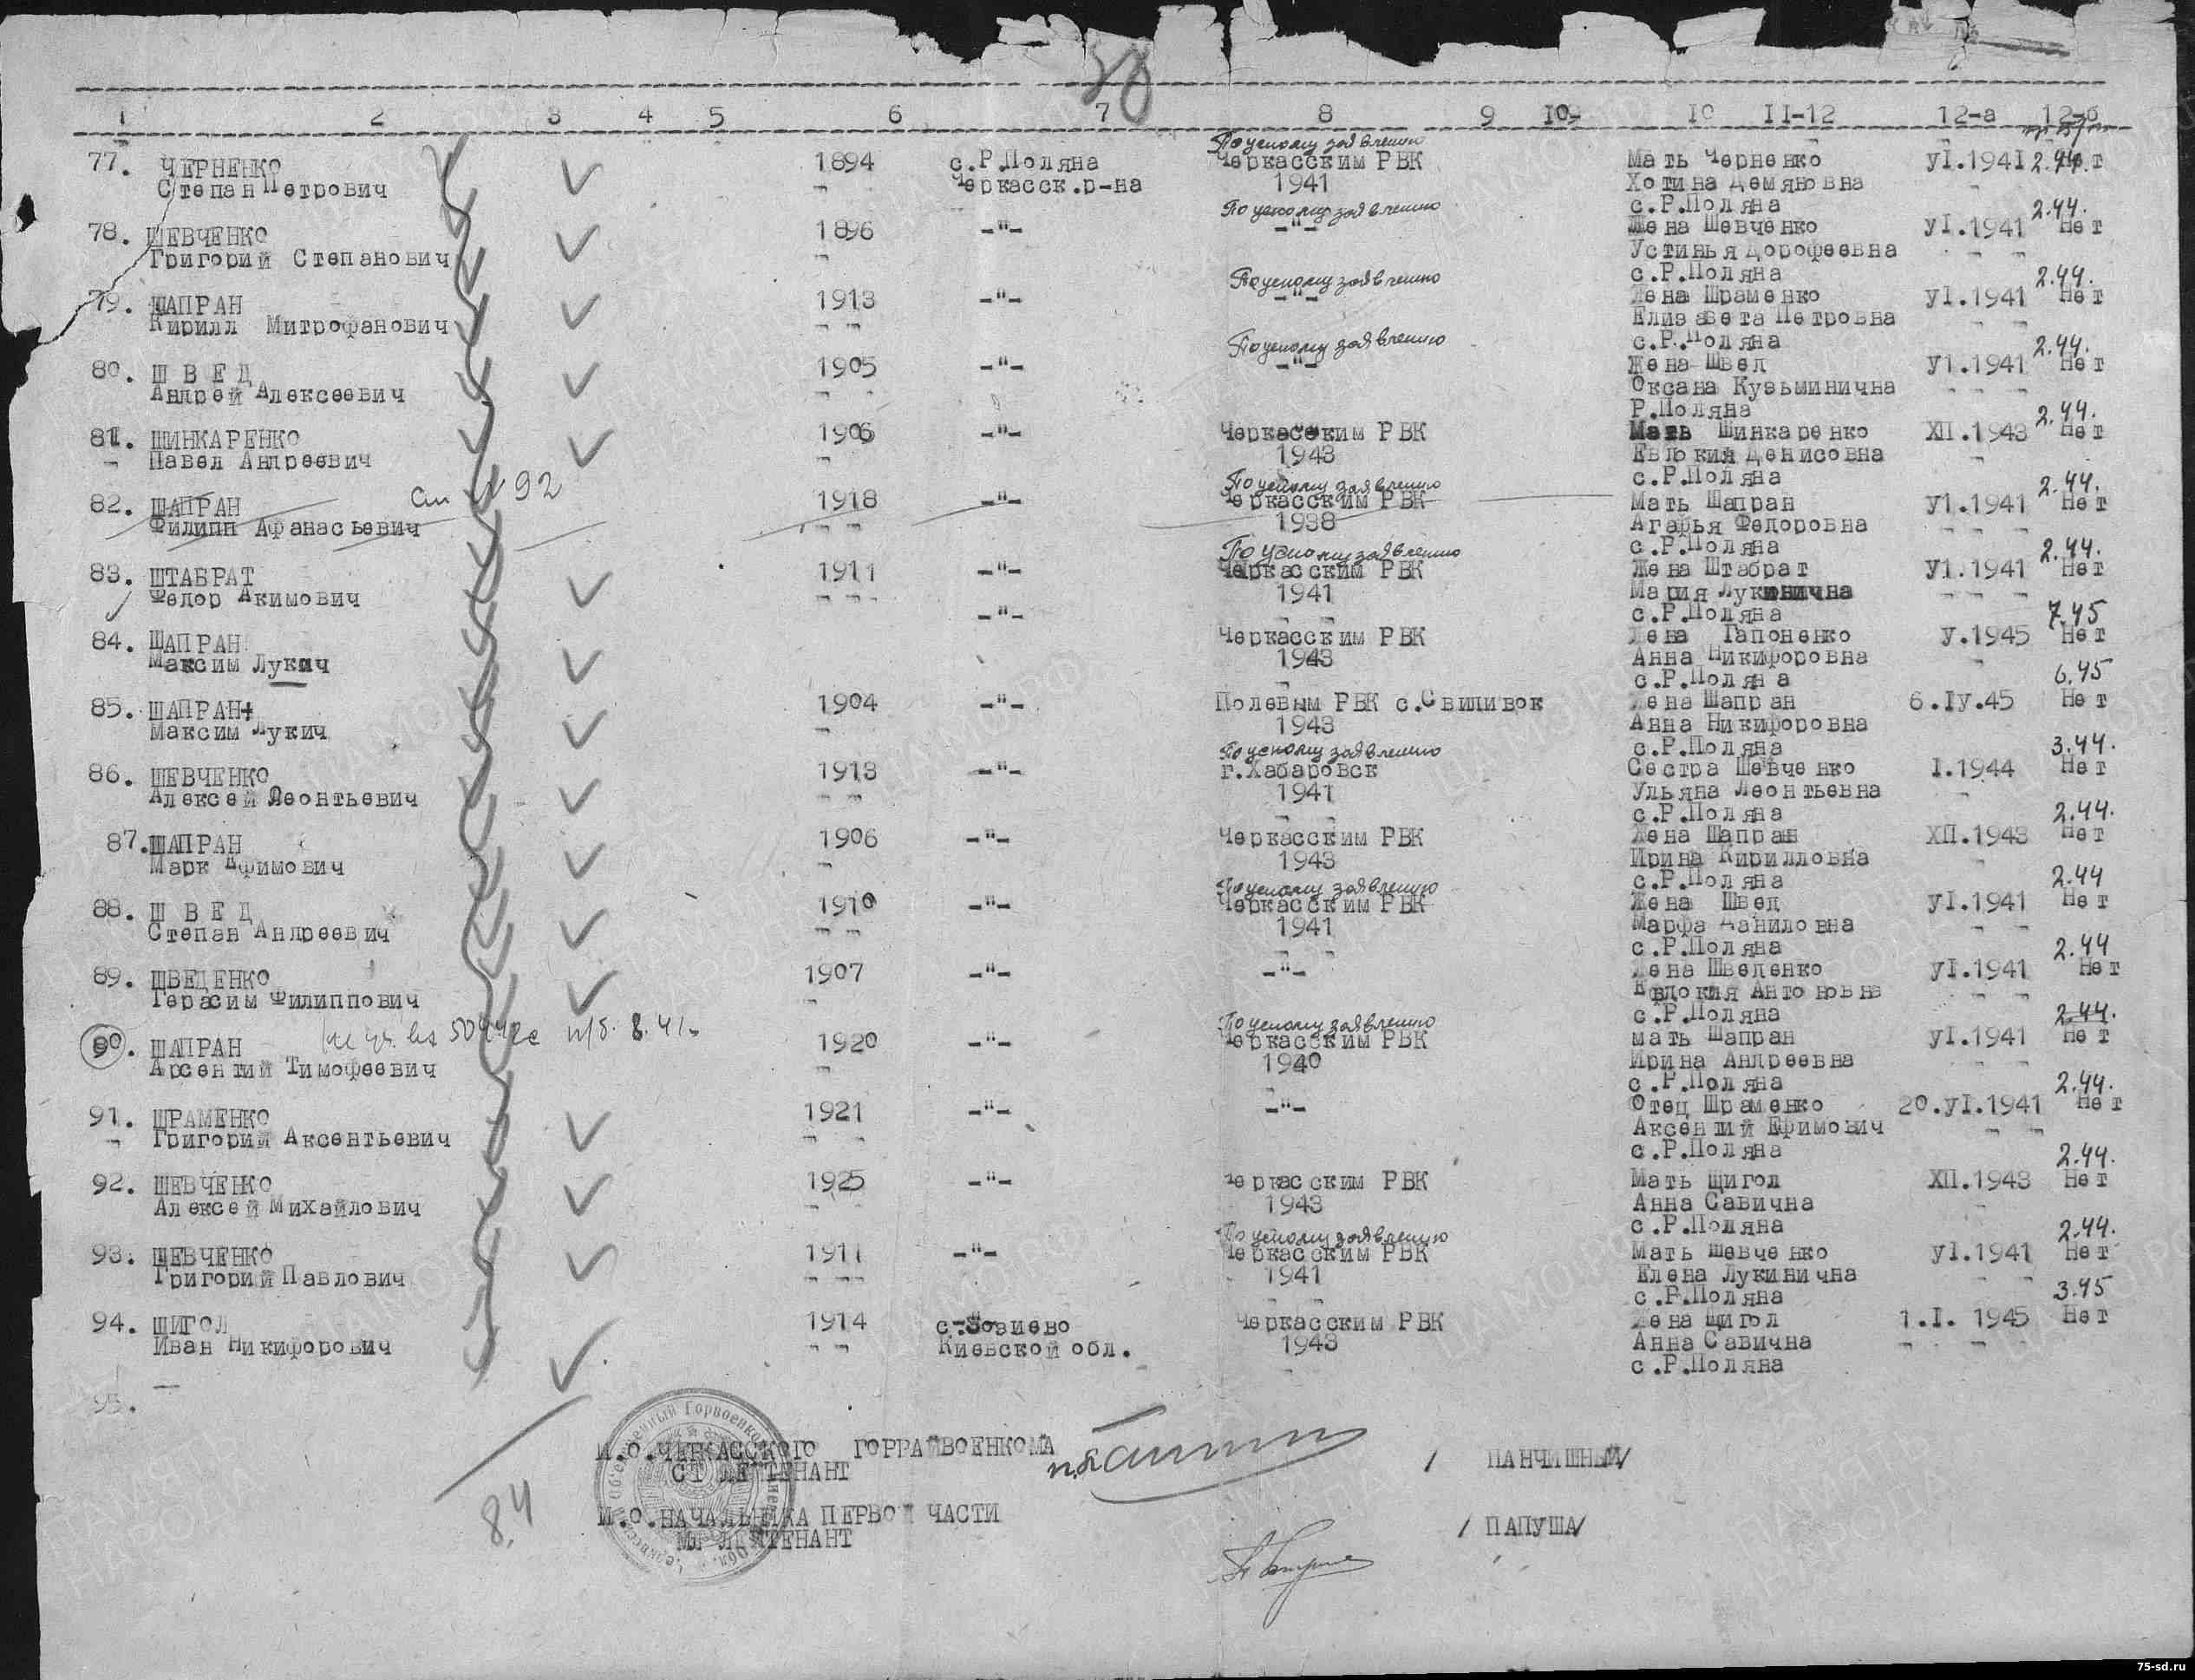 1 2 3 4 5 6 7 8 9 10 10 II-12 12-а 12-б
По усному заявлению
77. ЧЕРНЕНКО 1894 с.Р.Поляна Черкасским РВК Мать Черненко уI.1941 2.44. Нет
Степан Петрович Черкасск.р-на 1941 Хотина Демяновна
По усному заявлению с.Р.Поляна 2.44.
78. ШЕВЧЕНКО 1896 -"- -"- Жена Шевченко уI.1941 Нет
Григорий Степанович Устинья Дорофеевна
По усному заявлению с.Р.Поляна 2.44.
79. ШАПРАН 1913 -"- -"- Жена Шраменко уI.1941 Нет
Кирилл Митрофанович Елизавета Петровна
По усному заявлению с.Р.Поляна 2.44.
80. Ш В Е Д 1905 -"- -"- Жена Швед У1.1941 Нет
Андрей Алексеевич Оксана Кузьминична
Р.Поляна 2.44.
81. ШИНКАРЕНКО 1906 -"- Черкасским РВК Мать Шинкаренко ХП.1943 Нет
Павел Андреевич 1943 Евдокия Денисовна
92 По усному заявлению с.Р.Поляна 2.44.
82. ШАПРАН 1918 -"- Черкасским РВК Мать Шапран У1.1941 Нет
Филипп Афанасьевич 1938 Агафья Федоровна
По усному заявлению с.Р.Поляна 2.44.
83. ШТАБРАТ 1911 -"- Черкасским РВК Жена Штабрат У1.1941 Нет
Федор Акимович 1941 Мария Лукинична
-"- с.Р.Поляна 7.45
84. ШАПРАН Черкасским РВК Жена Гапоненко У.1945 Нет
Максим Лукич 1943 Анна Никифоровна
с.Р.Поляна 6.45
85. ШАПРАН 1904 -"- Полевым РВК с.Свиливок Жена Шапран 6.Iу.45 Нет
Максим Лукич 1943 Анна Никифоровна
По усному заявлению с.Р.Поляна 3.44.
86. ШЕВЧЕНКО 1913 -"- г.Хабаровск Сестра Шевченко I.1944 Нет
Алексей Леонтьевич 1941 Ульяна Леонтьевна
с.Р.Поляна 2.44.
87. ШАПРАН 1906 -"- Черкасским РВК Жена Шапран ХП.1943 Нет
Марк Ефимович 1943 Ирина Кирилловна
По усному заявлению с.Р.Поляна 2.44
88. Ш В Е Д 1910 -"- Черкасским РВК Жена Швед уI.1941 Нет
Степан Андреевич 1941 Марфа Даниловна
с.Р.Поляна 2.44
89. ШВЕДЕНКО 1907 -"- -"- Жена Шведенко уI.1941 Нет
Герасим Филиппович Евдокия Антоновна
8.41 По усному заявлению с.Р.Поляна 2.44.
90. ШАПРАН 1920 -"- Черкасским РВК мать Шапран уI.1941 Нет
Арсентий Тимофеевич 1940 Ирина Андреевна
с.Р.Поляна 2.44.
91. ШРАМЕНКО 1921 -"- -"- Отец Шраменко 20.уI.1941 Нет
Григорий Аксентьевич Аксентий Ефимович
с.Р.Поляна 2.44.
92. ШЕВЧЕНКО 1925 -"- Черкасским РВК Мать Щигол ХП.1943 Нет
Алексей Михайлович 1943 Анна Савична
По усному заявлению с.Р.Поляна 2.44.
93. ШЕВЧЕНКО 1911 -"- Черкасским РВК Мать Шевченко уI.1941 Нет
Григорий Павлович 1941 Елена Лукинична
с.Р.Поляна 3.45
94. ШИГОЛ 1914 Черкасским РВК Жена Щигол 1.I. 1945 Нет
Иван Никифорович Киевской обл. 1943 Анна Савична
с.Р.Поляна
95.
И.О.ЧЕРКАССКОГО ГОРРАЙВОЕНКОМА / ПАНЧИШНЫЙ/
СТ ЛЕЙТЕНАНТ
84
И.О.НАЧАЛЬНИКА ПЕРВОЙ ЧАСТИ / ПАПУША/
МЛ ЛЕЙТЕНАНТ
75-sd.ru